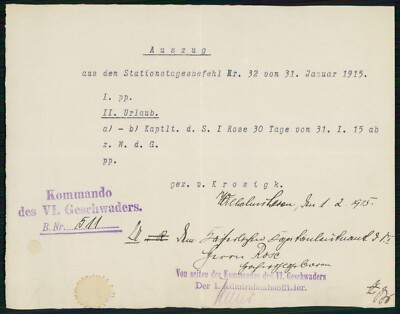 Auszug
aus dem Stationstagesbefehl Nr. 32 vom 31. Januar 1915.
I. pp.
II. Urlaub.
a) - b) Kaptlt. d. S. I Rose 30 Tage vom 31. I. 15 ab
z. W. d. G.
pp.
gez. v. Krosigk.
Wilhelmshaven, den 1. 2. 1915
Kommando
des VI. Geschwaders.
B. Nr. 511
dem Kapitänleutnant d. S. I
Herrn Rose
Von seiten des Kommandos des VI. Geschwaders
Der I. Admiralstabsoffizier.